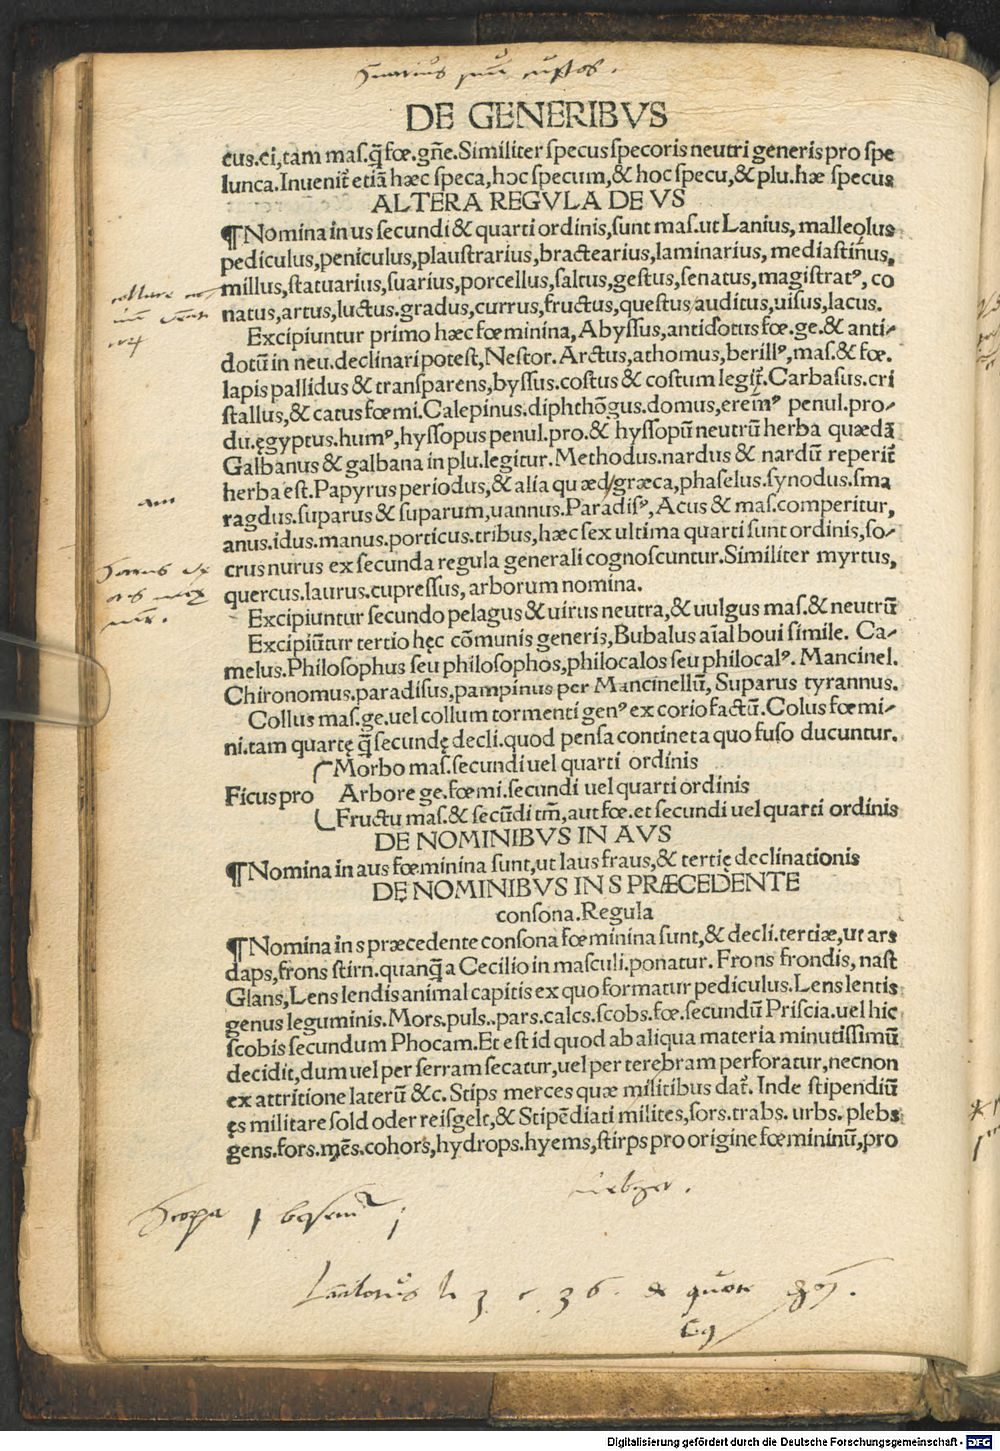 Suarius suum custos.
DE GENERIBVS
cus.ci,tam mas.q̃ fœ.gñe.Similiter specus specoris neutri generis pro spe
lunca.Inuenit᷑ etiã hæc speca,hoc specum,& hoc specu,& plu.hæ specus
ALTERA REGVLA DE VS
¶Nomina in us secundi & quarti ordinis,sunt mas.ut Lanius, malleolus
pediculus,peniculus,plaustrarius,bractearius,laminarius, mediastinus,
millus,statuarius,suarius,porcellus,saltus,gestus,senatus,magistratꝰ, co
natus,artus,luctus.gradus,currus,fructus,questus auditus,uisus,lacus.
Excipiuntur primo hæc fœminina, Abyssus,antidotus fœ.ge.& anti⸗
dotũ in neu.declinari potest,Nestor. Arctus,athomus,berillꝰ,mas.& fœ.
lapis pallidus & transparens,byssus.costus & costum legit᷑.Carbasus.cri
stallus,& catus fœmi.Calepinus.diphthõgus.domus,eremꝰ penul.pro⸗
du.ęgyptus.humꝰ,hyssopus penul.pro.& hyssopũ neutrũ herba quædã
Galbanus & galbana in plu.legitur.Methodus.nardus & nardũ reperit᷑
herba est.Papyrus periodus,& alia quæd/græca,phaselus.synodus.sma
ragdus.suparus & suparum,uannus.Paradisꝰ, Acus & mas.comperitur,
anus.idus.manus.porticus.tribus,hæc sex ultima quarti sunt ordinis,so⸗
crus nurus ex secunda regula generali cognoscuntur.Similiter myrtus,
quercus.laurus.cupressus, arborum nomina.
Excipiuntur secundo pelagus & uirus neutra,& uulgus mas.& neutrũ
Excipiũtur tertio hęc cõmunis generis,Bubalus aĩal boui simile. Ca⸗
melus.Philosophus seu philosophos,philocalos seu philocalꝰ. Mancinel.
Chironomus.paradisus,pampinus per Mancinellũ, Suparus tyrannus.
Collus mas.ge.uel collum tormenti genꝰ ex corio factũ.Colus fœmi⸗
ni.tam quartę q̃ secundę decli.quod pensa continet a quo fuso ducuntur.
Morbo mas.secundi uel quarti ordinis
Ficus pro Arbore ge.fœmi.secundi uel quarti ordinis
Fructu mas.& secũdi tm̃,aut fœ.et secundi uel quarti ordinis
DE NOMINIBVS IN AVS
¶Nomina in aus fœminina sunt,ut laus fraus,& tertię declinationis
DE NOMINIBVS IN S PRÆCEDENTE
consona.Regula
¶Nomina in s præcedente consona fœminina sunt,& decli.tertiæ,ut ars
daps,frons stirn.quanq̃ a Cecilio in masculi.ponatur. Frons frondis, nast
Glans,Lens lendis animal capitis ex quo formatur pediculus.Lens lentis
genus leguminis.Mors.puls..pars.calcs.scobs.fœ.secundũ Priscia.uel hic
scobis secundum Phocam.Et est id quod ab aliqua materia minutissimũ
decidit,dum uel per serram secatur,uel per terebram perforatur,necnon
ex attritione laterũ &c.Stips merces quæ militibus dat᷑. Inde stipendiũ
ęs militare sold oder reisgelt,& Stipẽdiati milites,sors.trabs. urbs. plebs
gens.fors.mẽs.cohors,hydrops.hyems,stirps pro origine fœmininũ,pro
Scopa
Digitalisierung gefördert durch die Deutsche Forschungsgemeinschaft - DFG